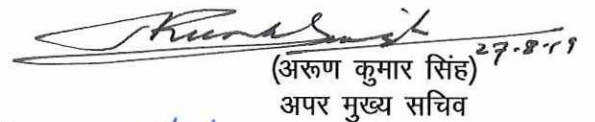 27-8-19
(अरूण कुमार सिंह)
अपर मुख्य सचिव